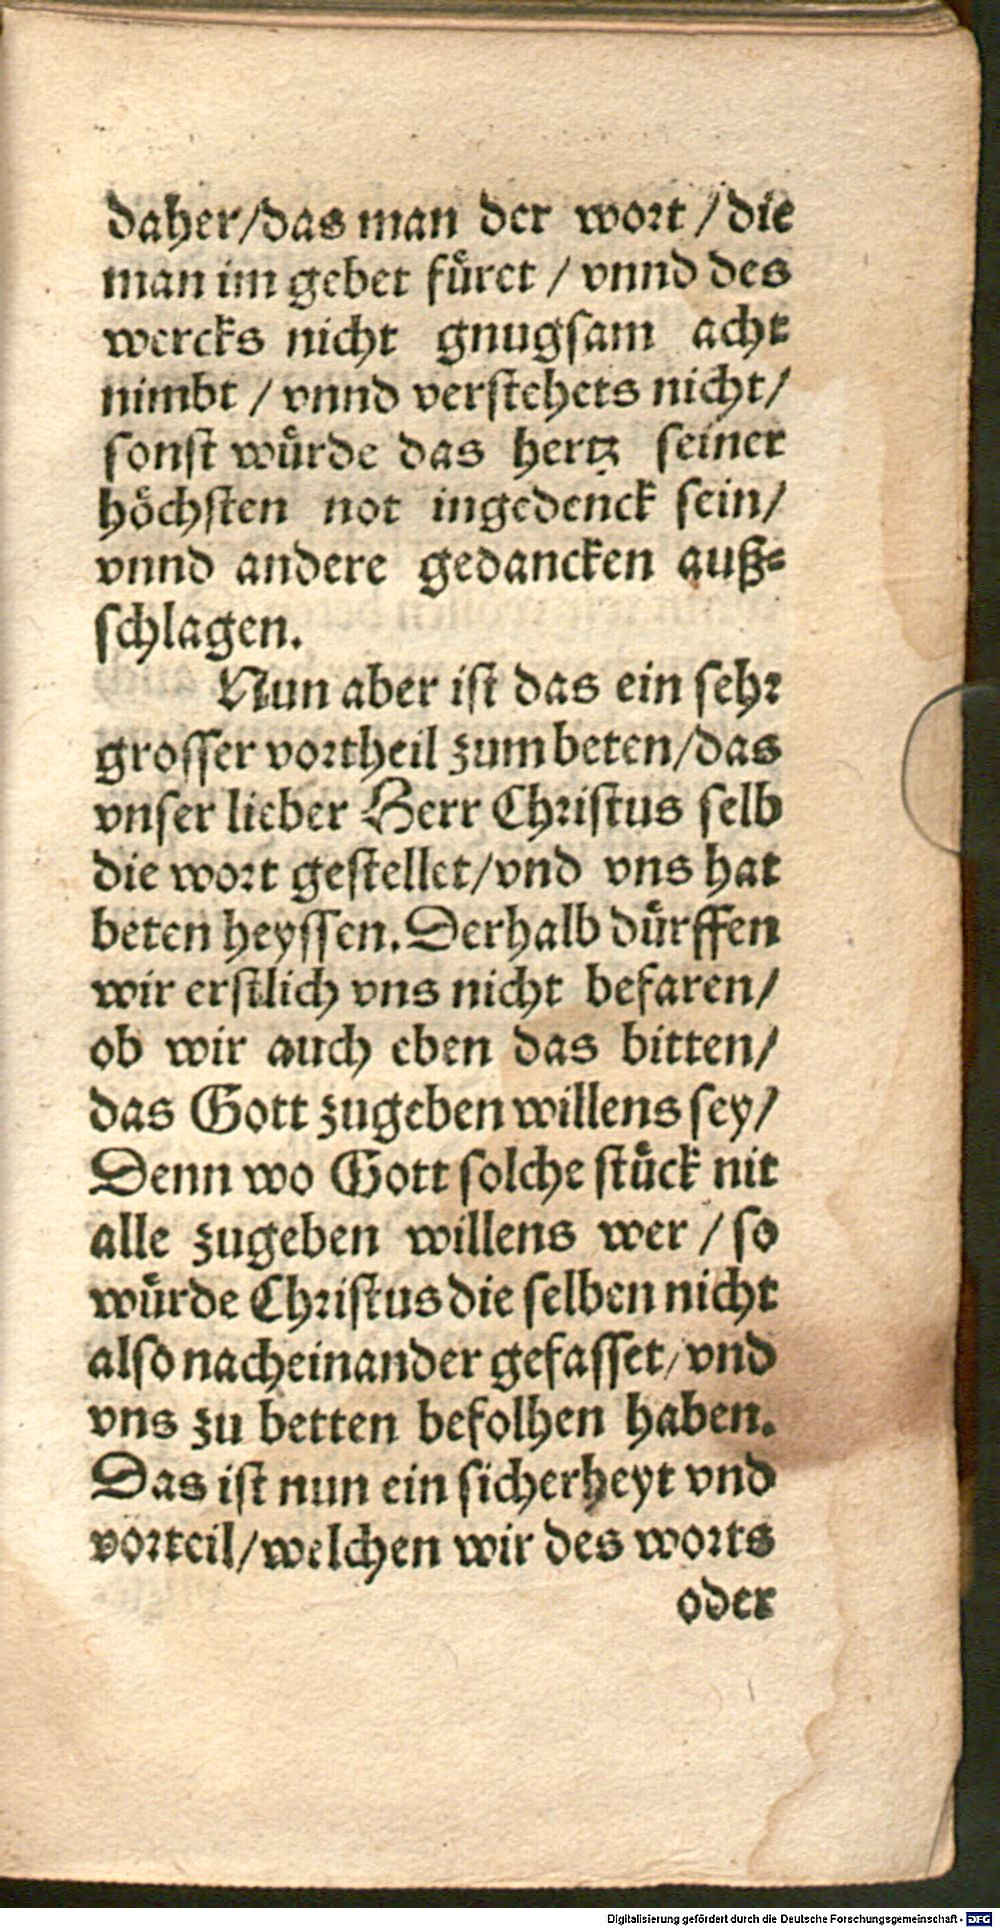 daher/das man der wort / die
man im gebet fuͤret / vnnd des
wercks nicht gnugſam acht
nimbt / vnnd verſtehets nicht/
ſonſt wuͤrde das hertz ſeiner
hoͤchſten not ingedenck ſein/
vnnd andere gedancken auß⸗
ſchlagen.
Nun aber iſt das ein ſehr
groſſer vortheil zum beten/das
vnſer lieber Herr Chriſtus ſelb
die wort geſtellet/vnd vns hat
beten heyſſen. Derhalb duͤrffen
wir erſtlich vns nicht befaren/
ob wir auch eben das bitten/
das Gott zugeben willens ſey/
Denn wo Gott ſolche ſtuͤck nit
alle zugeben willens wer / ſo
wuͤrde Chriſtus die ſelben nicht
alſo nacheinander gefaſſet/vnd
vns zu betten befolhen haben.
Das iſt nun ein ſicherheyt vnd
vorteil/welchen wir des worts
oder
Digitalisierung gefördert durch die Deutsche Forschungsgemeinschaft - DFG